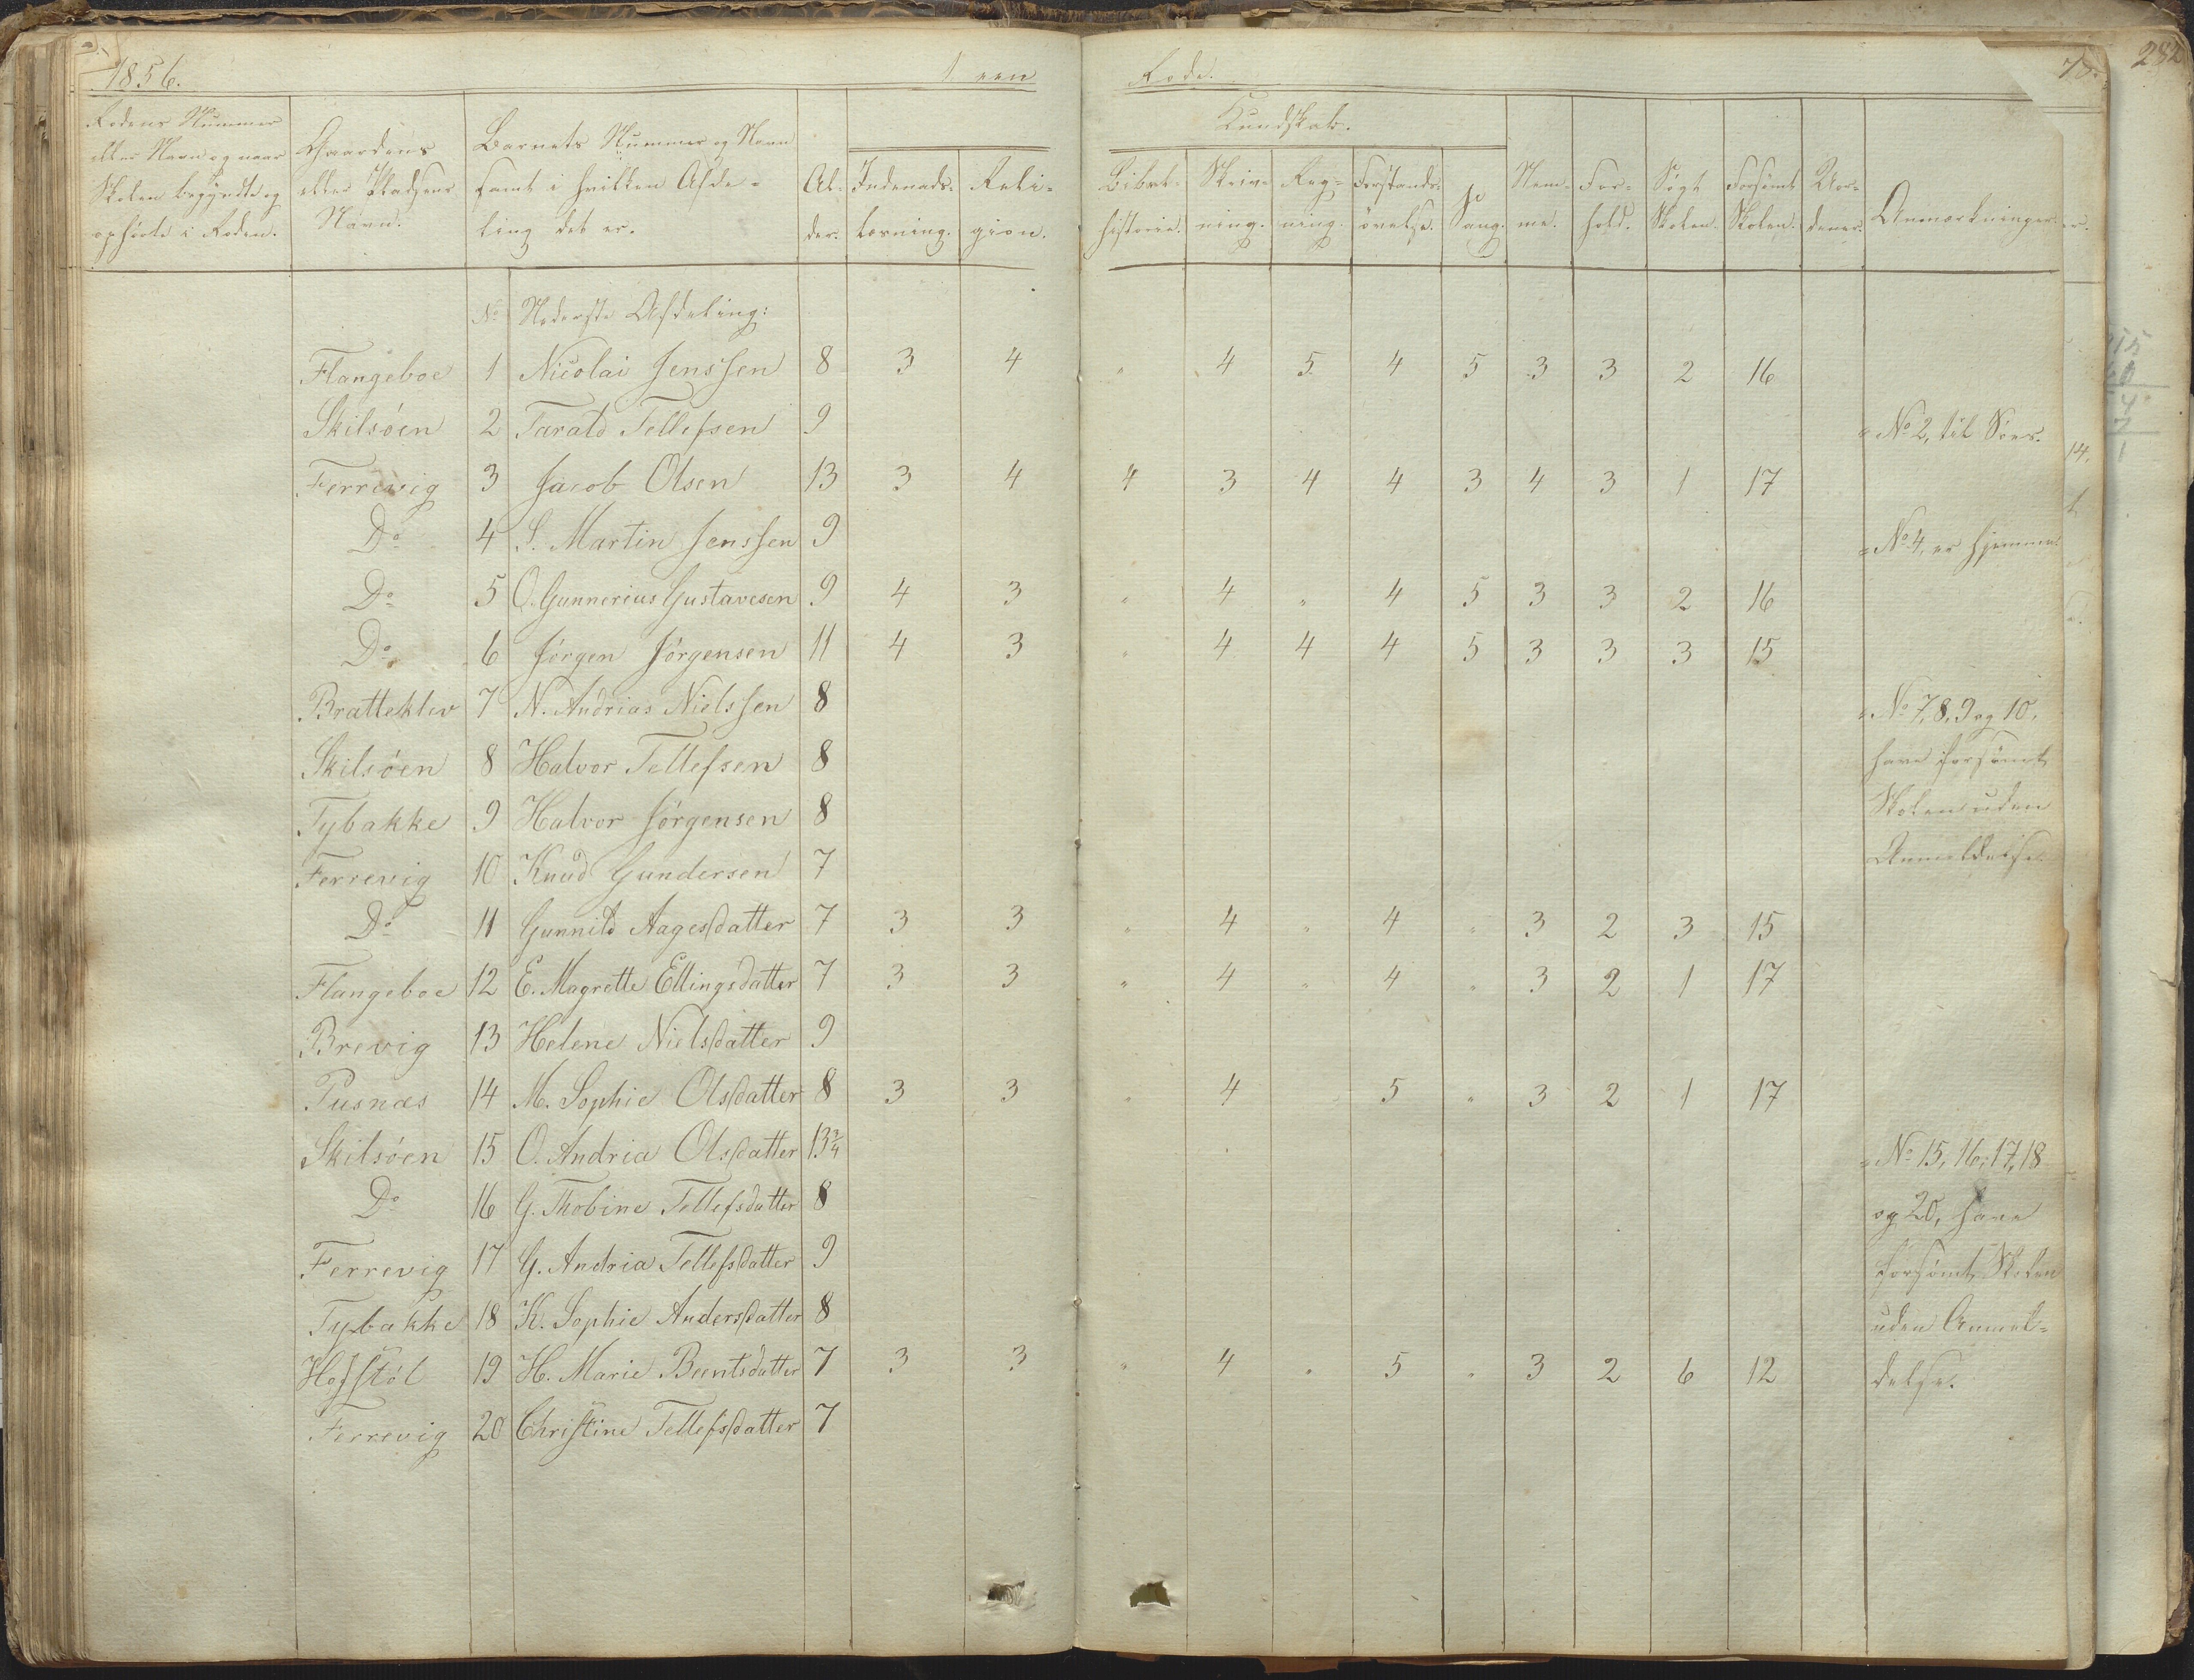 1856. 1 een Rode. 70. 282
Rodens Nummer eller Navn og naar Skolen begyndte og ophörte i Roden. | Gaardens eller Pladsens Navn. | Barnets Nummer og Navn samt i hvilken Afdeling det er. | Al-der. | Kundskab. | Nem-me. | For-hold. | Sögt Skolen. | Forsömt Skolen. | Uor-dener. | Anmærkninger.
Indenads-læsning. | Reli-gion. | Bibel-historie. | Skriv-ning. | Reg-ning. | Forstands-övelse. | Sang.
No Nederste Afdeling:
Flangeboe 1 Nicolai Jenssen 8 3 4 " 4 5 4 5 3 3 2 16
Skilsöen 2 Tarald Tellefsen 9 = No 2, til Söes.
Ferrevig 3 Jacob Olsen 13 3 4 4 3 4 4 3 4 3 1 17
Do 4 S. Martin Jenssen 9 = No 4, er hjemme.
Do 5 O. Gunnerius Gustavesen 9 4 3 " 4 " 4 5 3 3 2 16
Do 6 Jörgen Jörgensen 11 4 3 " 4 4 4 5 3 3 3 15
Bratteklev 7 N. Andrias Nielssen 8 = No 7, 8, 9 og 10,
Skilsöen 8 Halvor Tellefsen 8 have forsömt
Tybakke 9 Halvor Jörgensen 8 Skolen uden
Ferrevig 10 Knud Gundersen 7 Anmeldelse.
Do 11 Gunnild Aagesdatter 7 3 3 " 4 " 4 " 3 2 3 15
Flangeboe 12 E. Magrette Ellingsdatter 7 3 3 " 4 " 4 " 3 2 1 17
Brevig 13 Helene Nielsdatter 9
Pusnæs 14 M. Sophie Olsdatter 8 3 3 " 4 5 " 3 2 1 17
Skilsöen 15 O. Andria Olsdatter 13 3/4 = No 15, 16, 17, 18
Do 16 G. Thobine Tellefsdatter 8 og 20, have
Ferrevig 17 G. Andria Tellefsdatter 9 forsömt Skolen
Tybakke 18 K. Sophie Andersdatter 8 uden Anmel=
Hofstöl 19 H. Marie Berntsdatter 7 3 3 " 4 " 5 " 3 2 6 12 delse.
Ferrevig 20 Christine Tellefsdatter 7